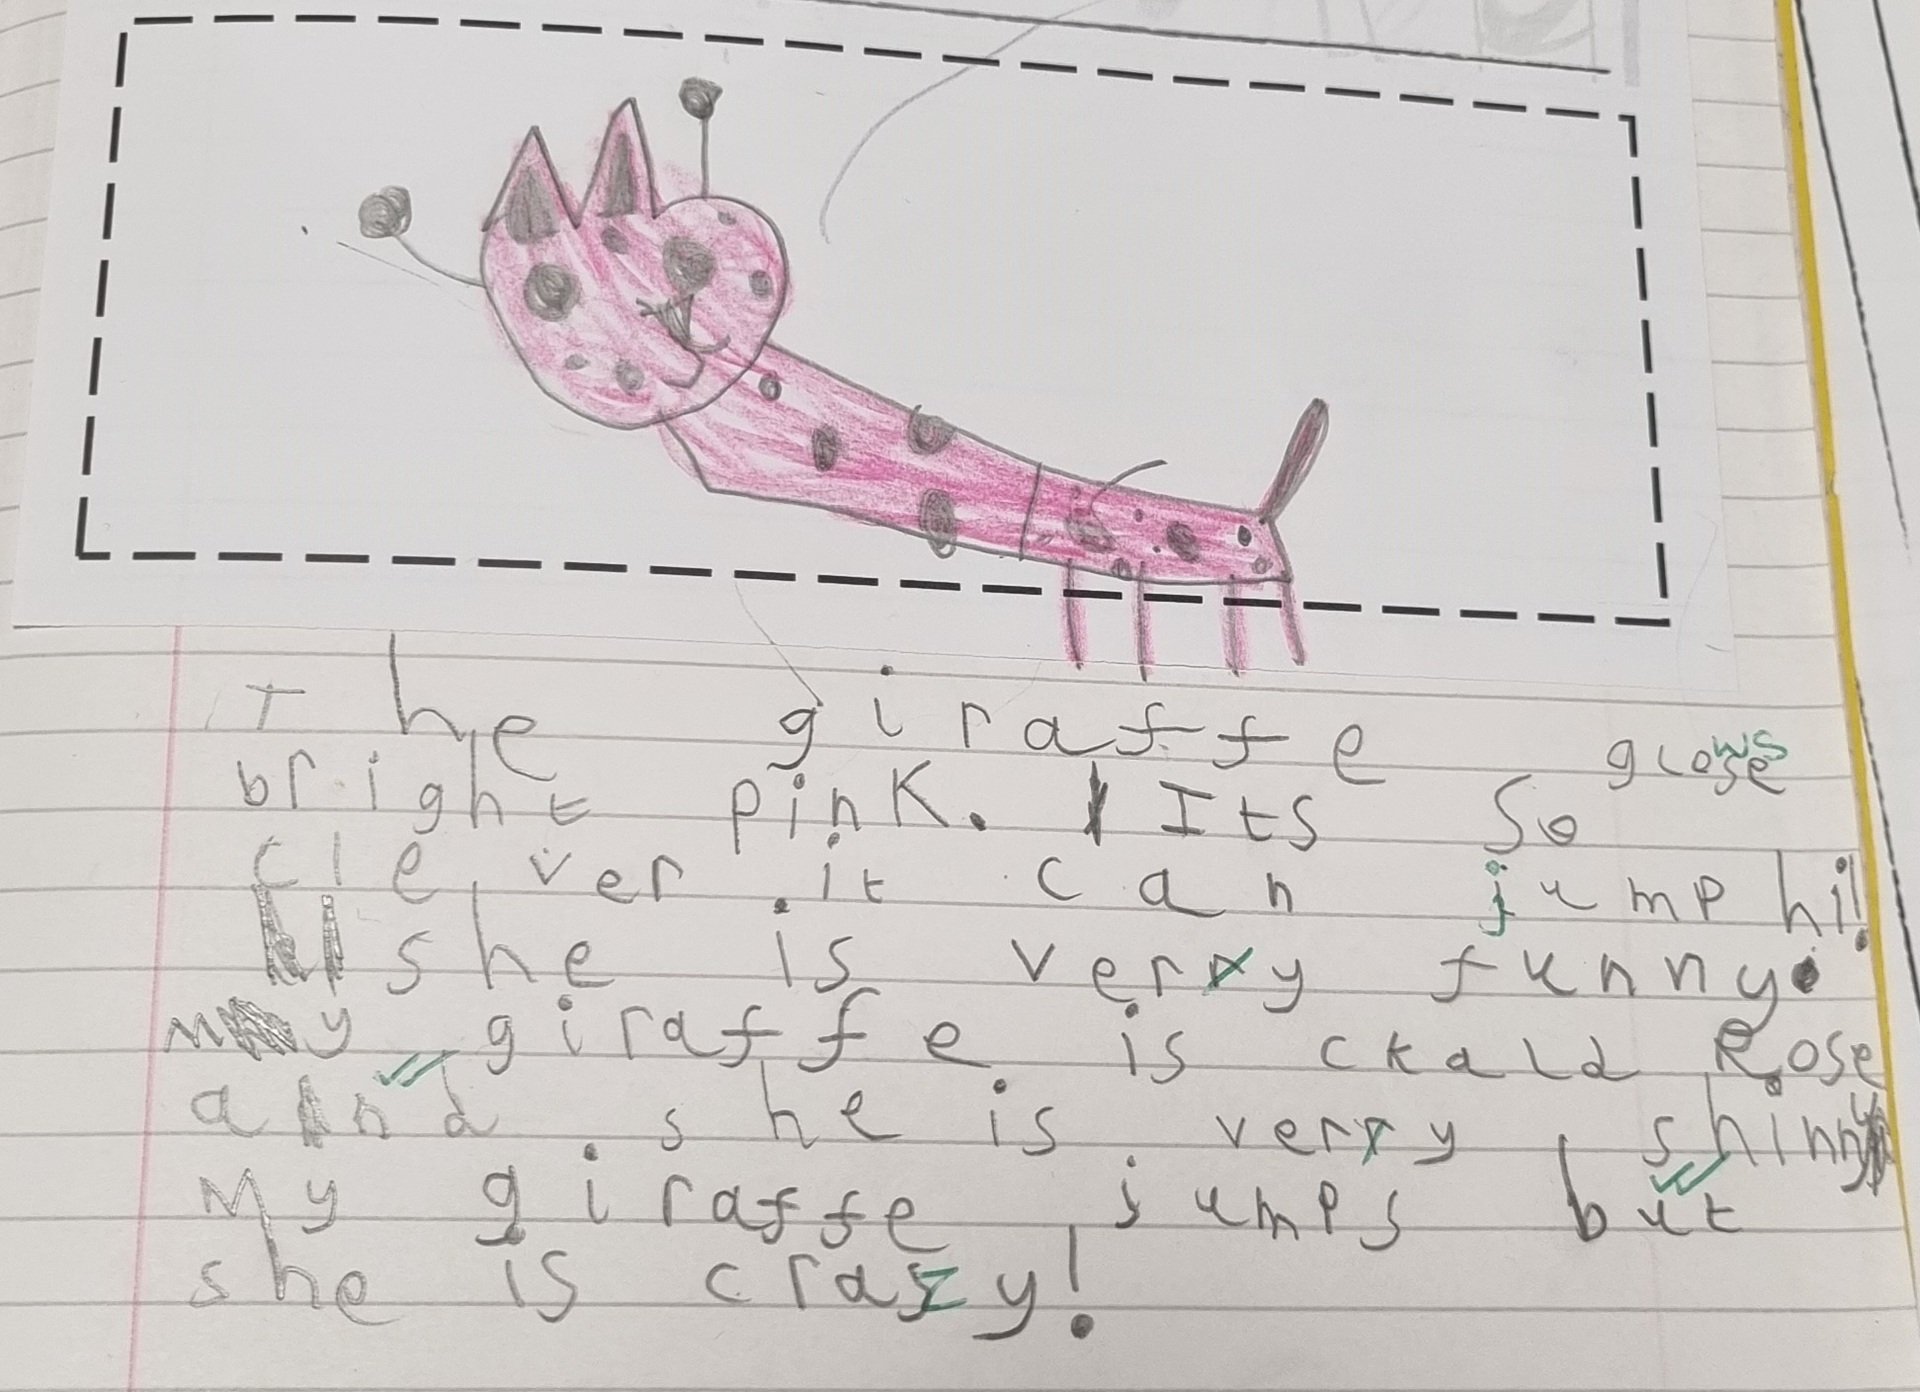 The giraffe glows
bright pink. Its So
clever. it can jump hi!
she is very funny.
my giraffe is ckald Rose
and she is very shinny
My giraffe jumps but
she is crazy!